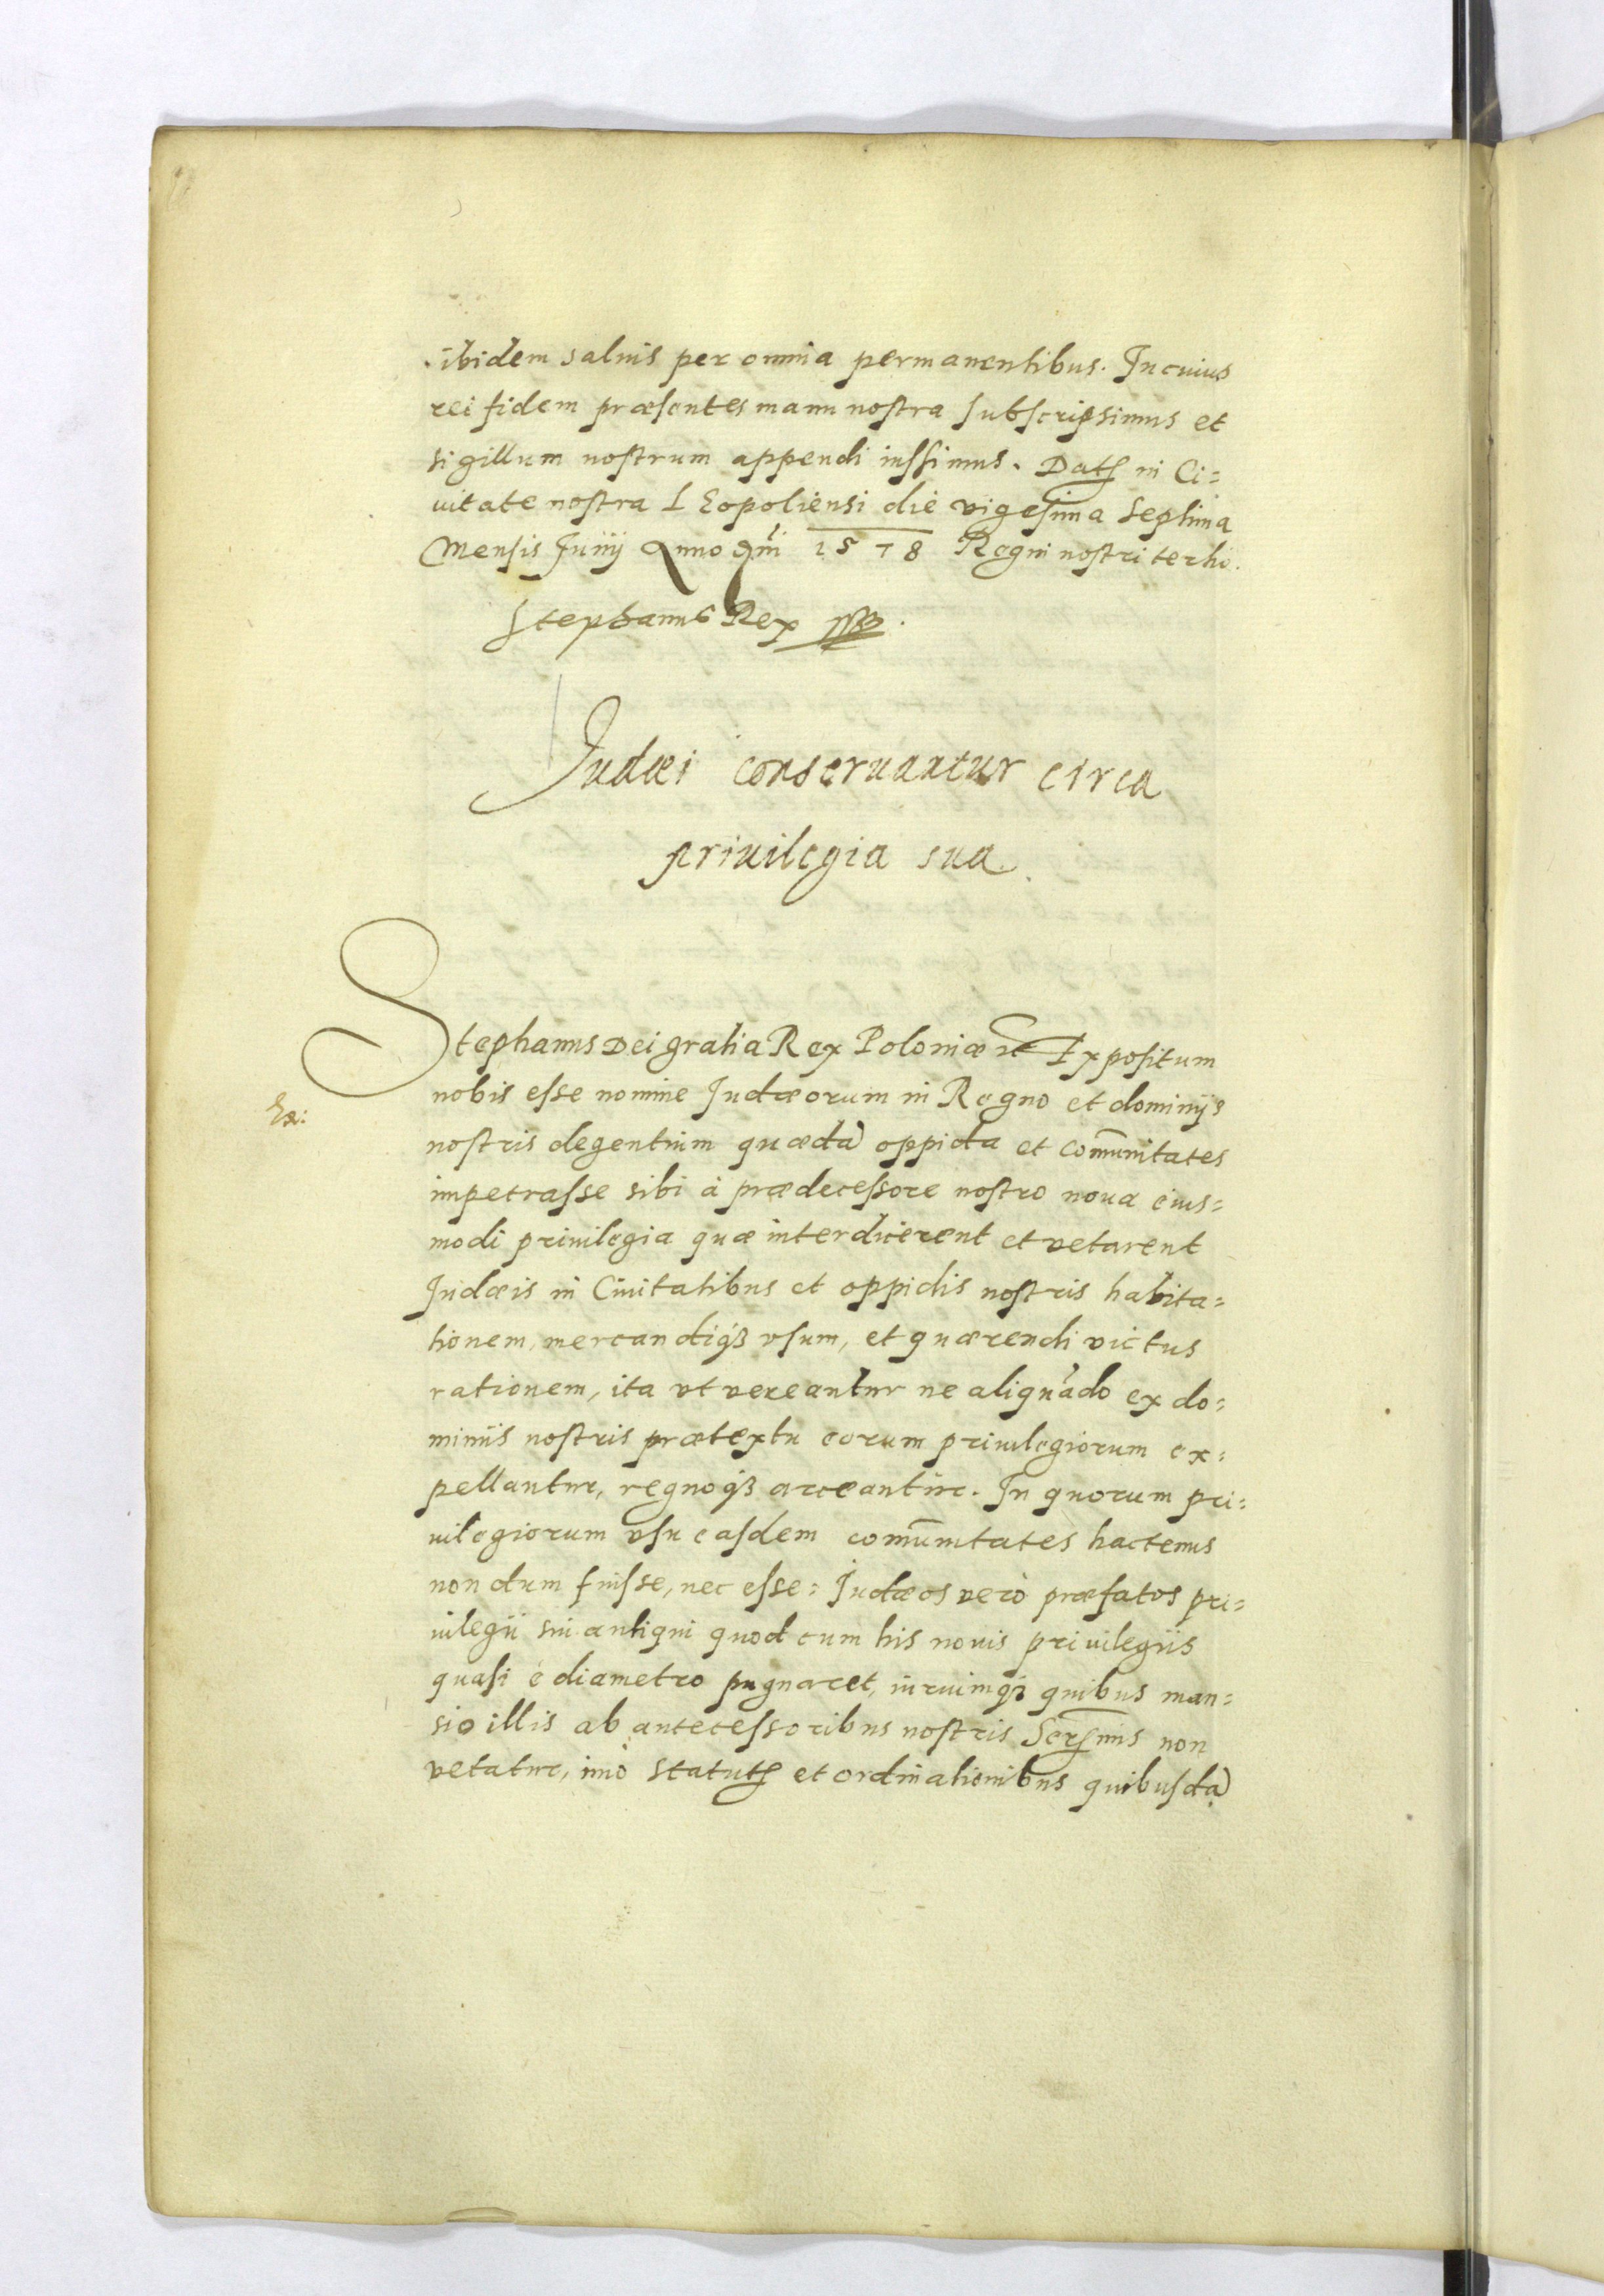 ibidem saluis per omnia permanentibus. In cuius
rei fidem præsentes manu nostra subscripsimus et
sigillum nostrum appendi iussimus. Datꝭ in Ci=
uitate nostra LEopoliensi die vigesima septima
Mensis Junij Anno Dni 1578 Regni nostri tertio.
Stephanus Rex
Judæi conseruantur circa
priuilegia sua.
Stephanus Dei gratia Rex Poloniæ etc Expositum
nobis esse nomine Judæorum in Regno et dominijs
nostris degentium quædã oppida et com̃unitates
impetrasse sibi à prædecessore nostro noua eius=
modi priuilegia quæ interdicerent et vetarent
Judæis in Ciuitatibus et oppidis nostris habita=
tionem, mercandiqꝫ vsum, et quærendi victus
rationem, ita vt vereantur ne aliquãdo ex do=
miniis nostris prætextu eorum priuilegiorum ex=
pellantur, regnoqꝫ arceantur. In quorum pri=
uilegiorum vsu easdem com̃unitates hactenus
non dum fuisse, nec esse: Judæos verò præfatos pri=
uilegii sui antiqui quod cum his nouis priuilegiis
quasi è diametro pugnaret, iuriumqꝫ quibus man=
sio illis ab antecessoribus nostris Serꝭmis non
vetatur, imò statutꝭ et ordinationibus quibusdã